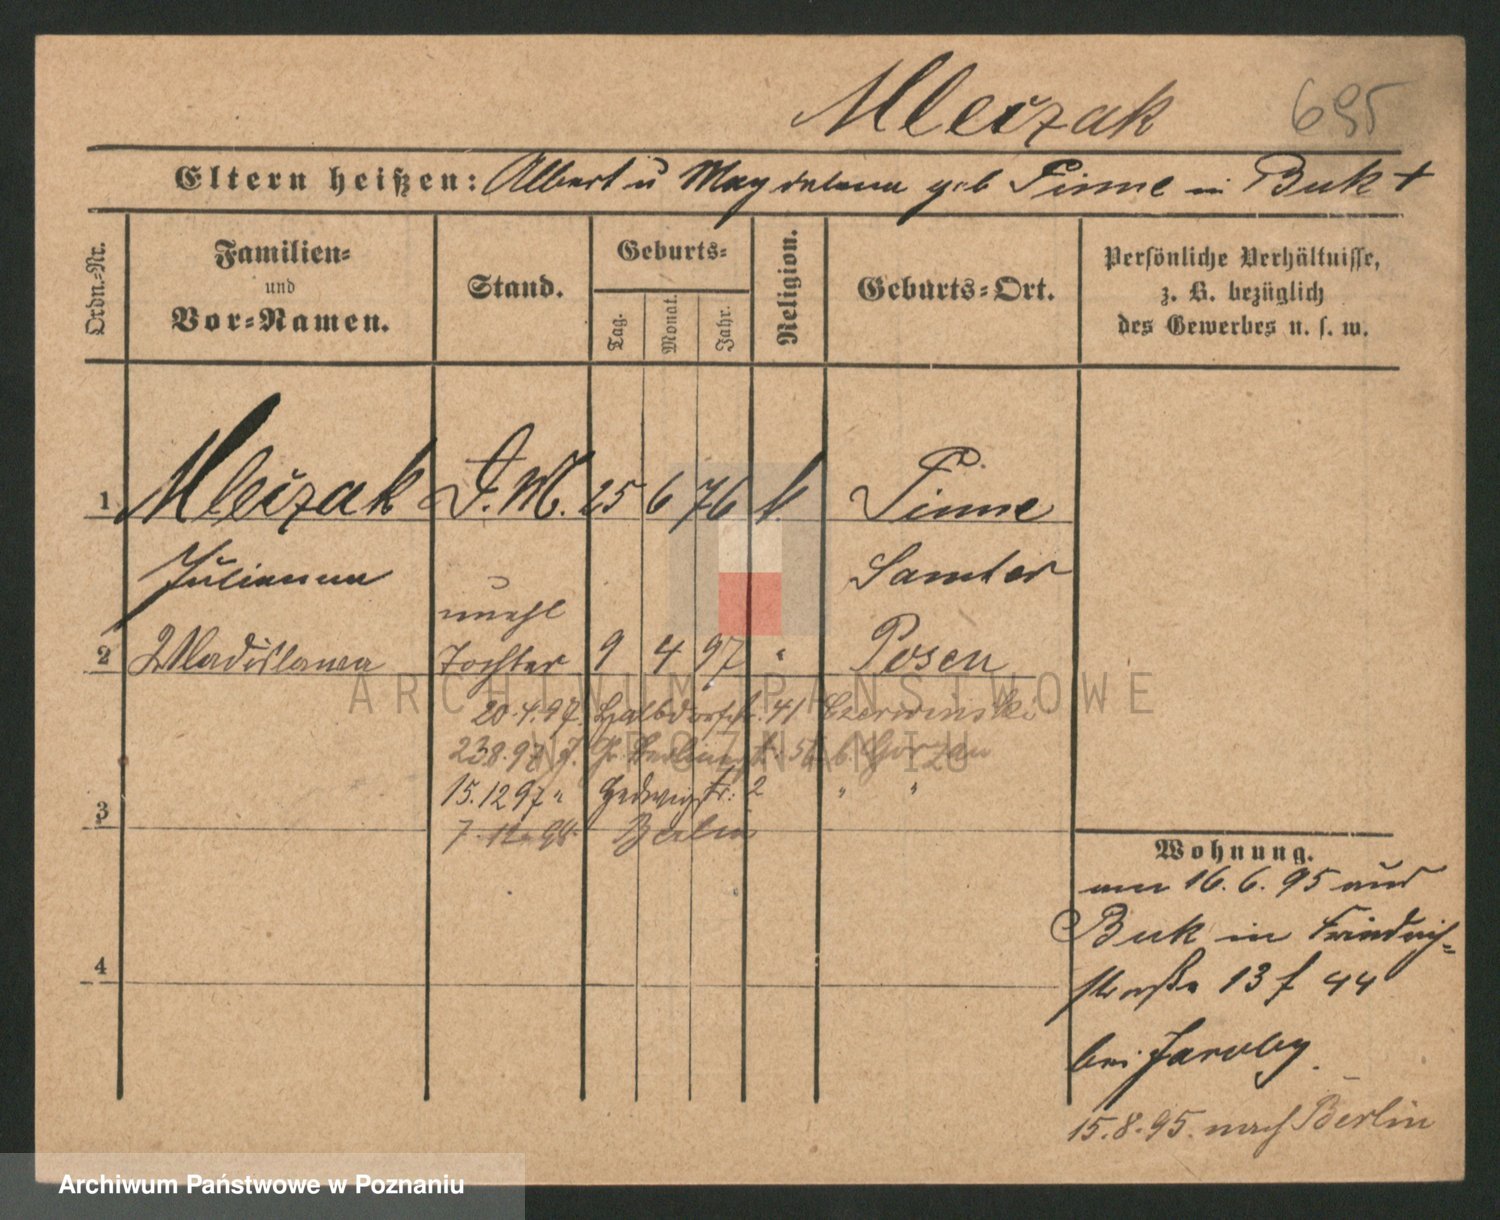 Mleczak 695
Eltern heißen: Albert u Magdalena geb Pinne in Buk +
Ordn.-Nr.
Familien-
und
Vor-Namen.
Stand.
Geburts-
Tag.
Monat.
Jahr.
Religion.
Geburts-Ort.
Persönliche Verhältnisse,
z. B. bezüglich
des Gewerbes u. s. w.
1 Mleczak D. M. 25 6 76 k Pinne
Julianna Samter
unehl
2 Wladislawa Tochter 9 4 97 " Posen
20.4.97. Halbdorfstr. 41 Czerwinski
23.8.97 Gr. Gerberstr. b. Gorzan
15.12 97 " Hedwigstr. 2 " "
3
7. 12. 98 Berlin
Wohnung.
am 16.6.95 aus
Buk in Friedrich-
straße 13 f 44
bei Jacoby.
4
15.8.95. nach Berlin
ARCHIWUM PAŃSTWOWE
W POZNANIU
Archiwum Państwowe w Poznaniu